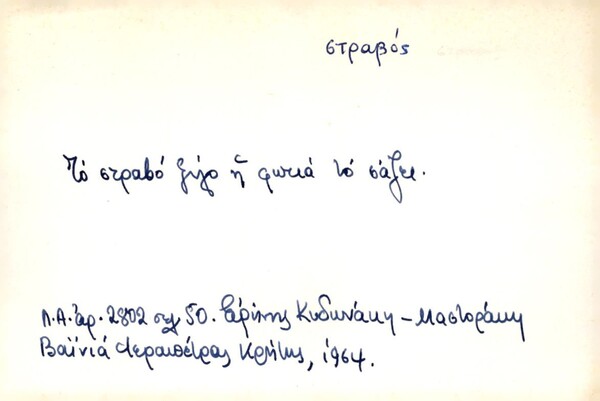 στραβός
Τό στραβό ξύλο ἡ φωτιά τό σάζει.
Λ.Α. ἀρ. 2802 σελ. 50. Εἰρήνης Κυδωνάκη – Μαστοράκη
Βαϊνιά Ἱεραπέτρας Κρήτης, 1964.